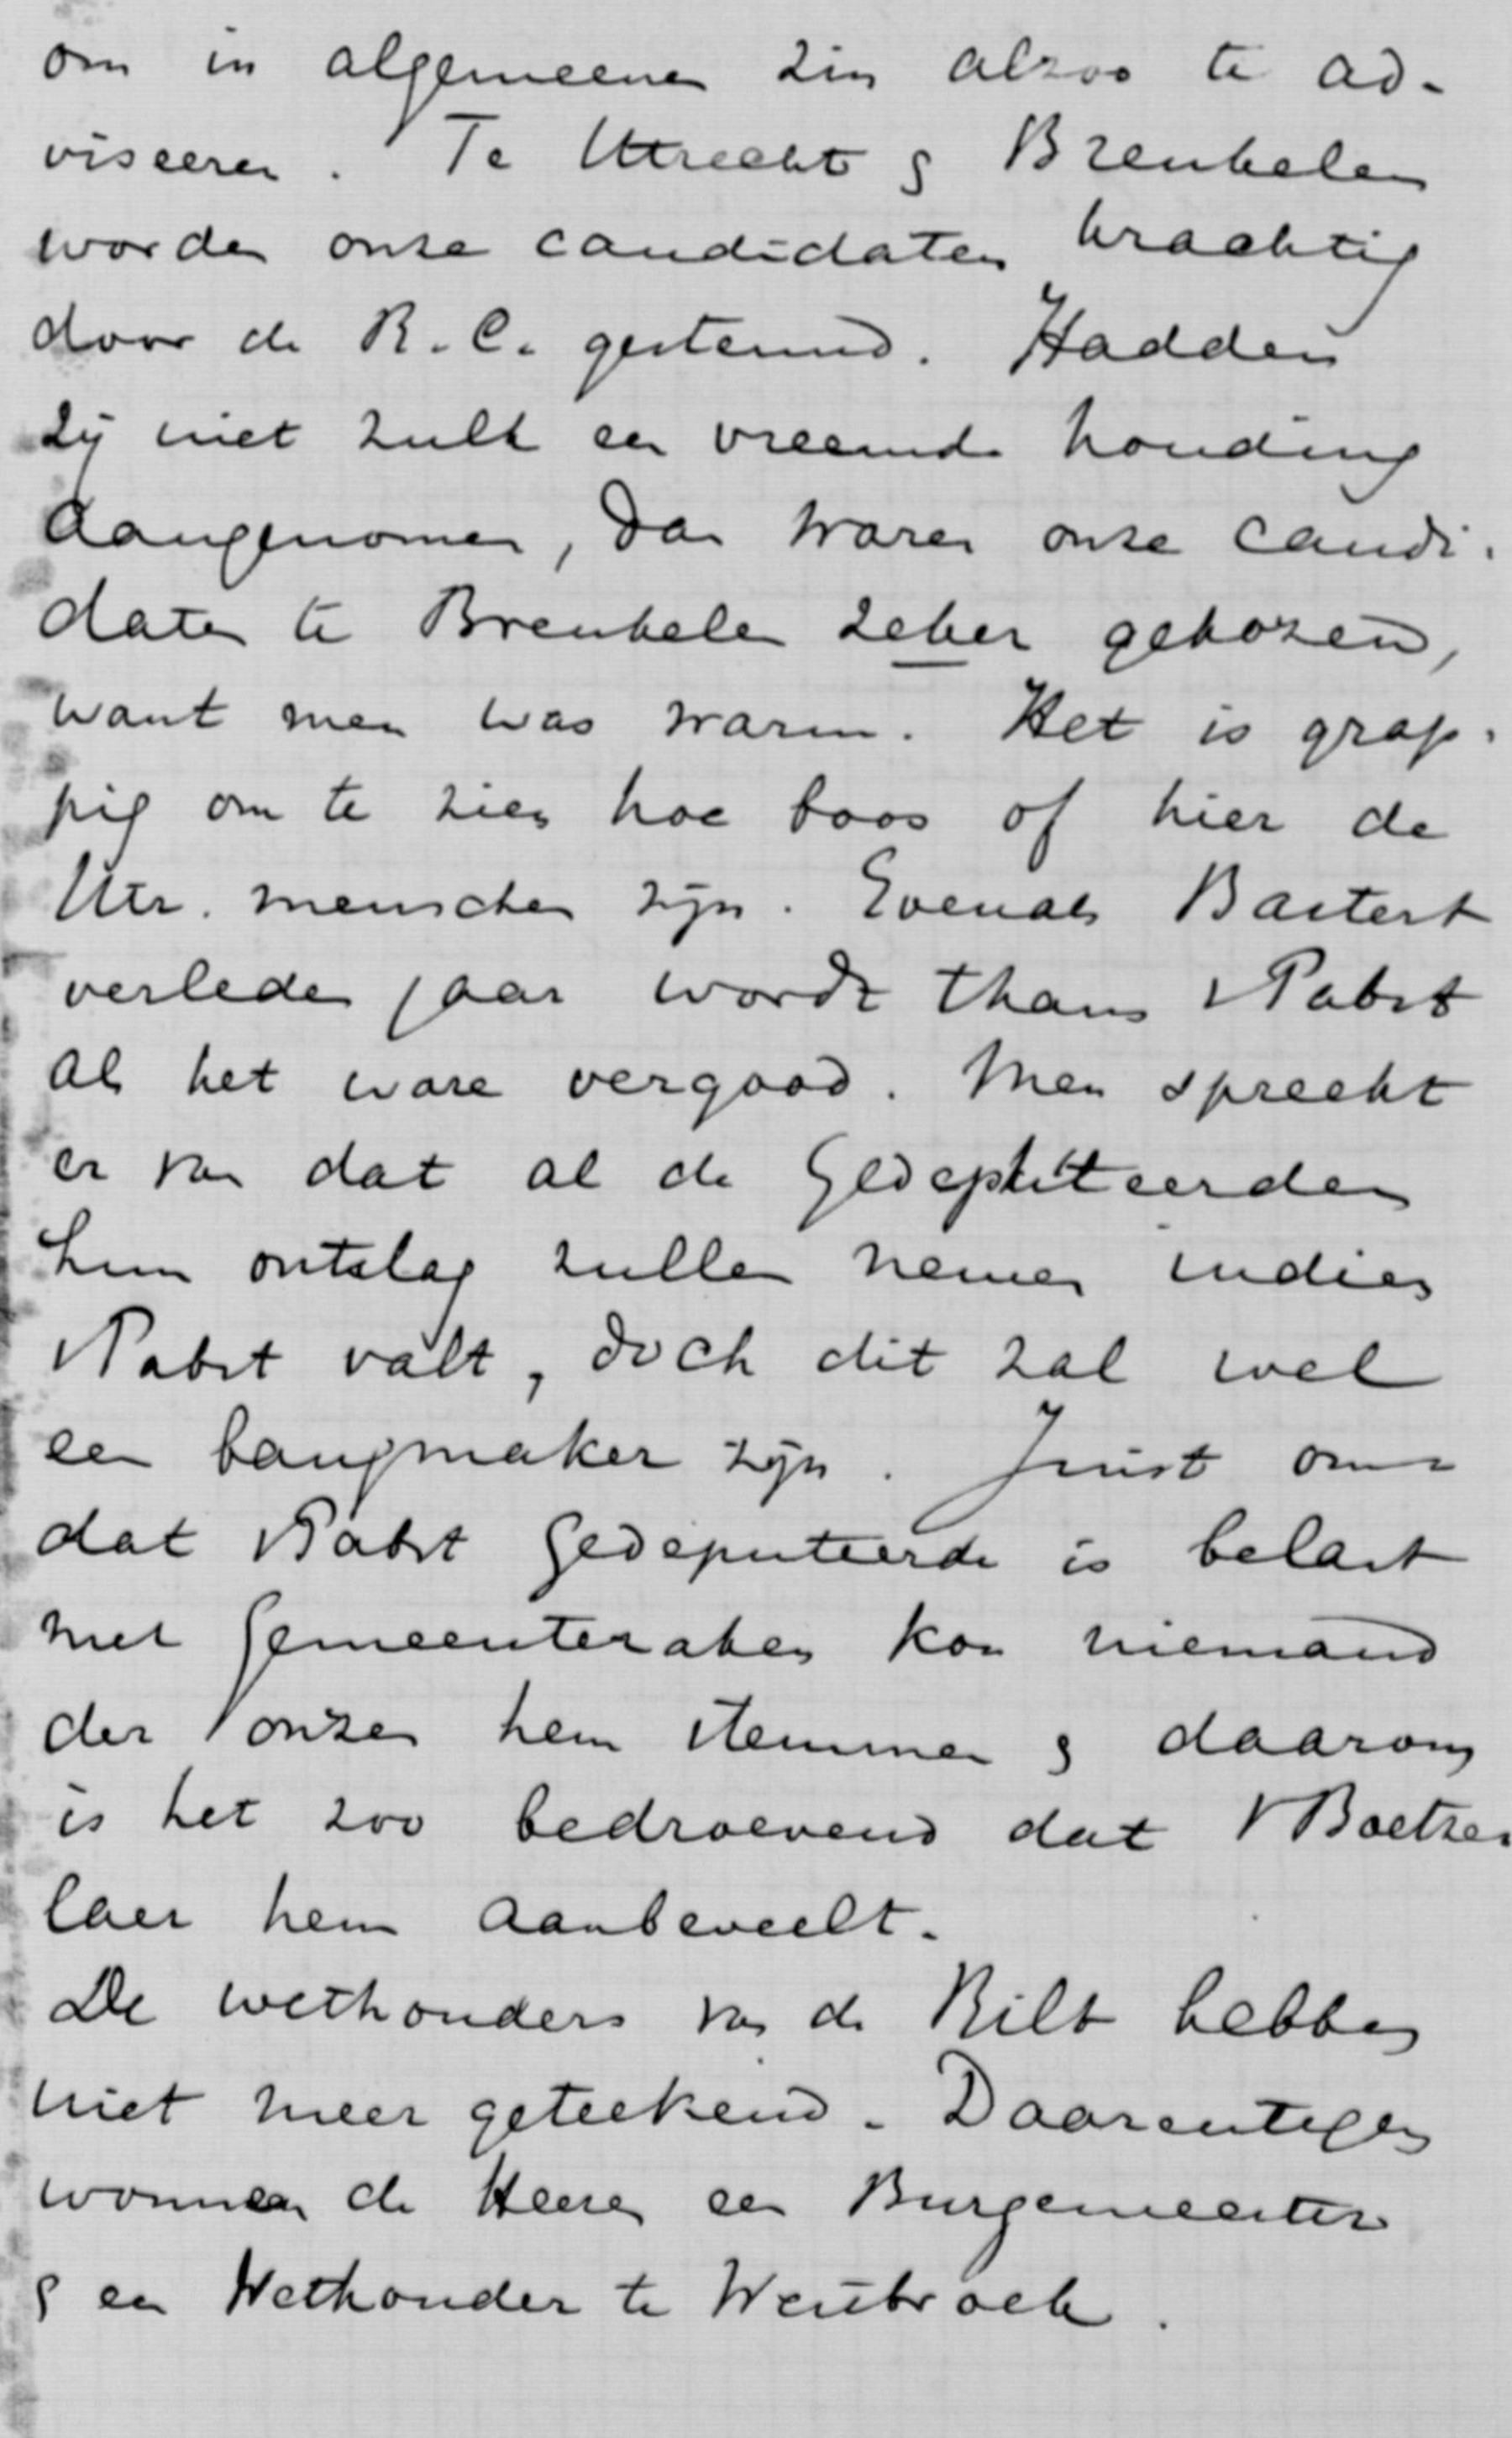 om in algemeenen zin alzoo te ad-
viseeren. Te Utrecht & Breukelen
worden onze candidaten krachtig
door de R.C. gesteund. Hadden
zij niet zulk een vreemde houding
aangenomen, dan waren onze candi-
daten te Breukelen zeker gekozen,
want men was warm. Het is grap-
pig om te zien hoe boos of hier de
Utr. menschen zijn. Evenals Bastert
verleden jaar wordt thans v Pabst
als het ware vergood. Men spreekt
er van dat al de Gedeputeerden
hun ontslag zullen nemen indien
v Pabst valt, doch dit zal wel
een bangmaker zijn. Juist om-
dat v Pabst Gedeputeerde is belast
met Gemeentezaken kon niemand
der onzen hem stemmen & daarom
is het zoo bedroevend dat v Boetze
laer hem aanbeveelt.
De wethouders van de Bilt hebben
niet meer geteekend. Daarentegen
wonnen de Heeren een Burgemeester
& een Wethouder te Westbroek.